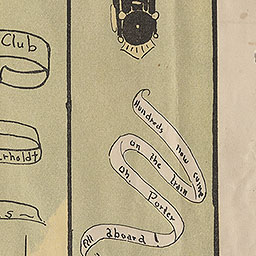 Club
erholdt
s
Hundreds now come
on the train
oh Porter
all aboard!